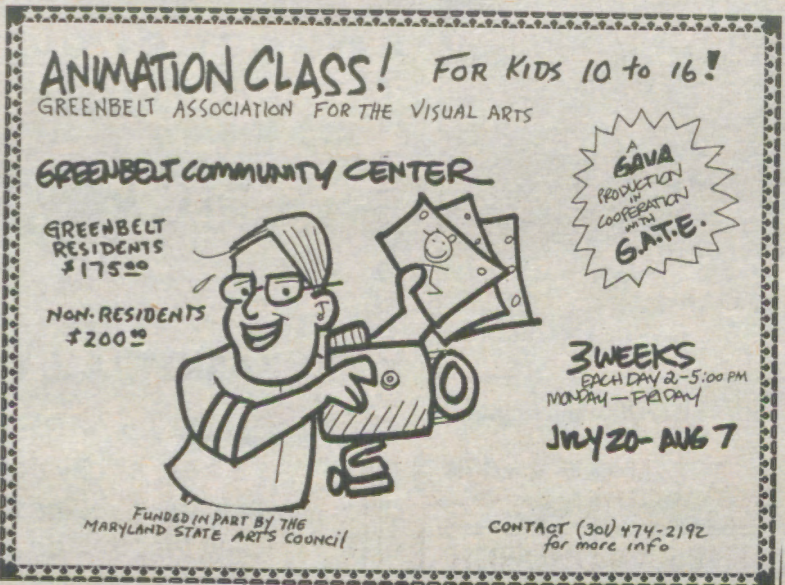 ANIMATION CLASS! FOR KIDS 10 to 16!
GREENBELT ASSOCIATION FOR THE VISUAL ARTS
GREENBELT COMMUNITY CENTER
A
GAVA
PRODUCTION
IN
COOPERATION
WITH
G.A.T.E.
GREENBELT
RESIDENTS
$175.00
NON-RESIDENTS
$200.00
3 WEEKS
EACH DAY 2-5:00 PM
MONDAY-FRIDAY
JULY 20-AUG 7
FUNDED IN PART BY THE
MARYLAND STATE ARTS COUNCIL
CONTACT (301) 474-2192
for more info